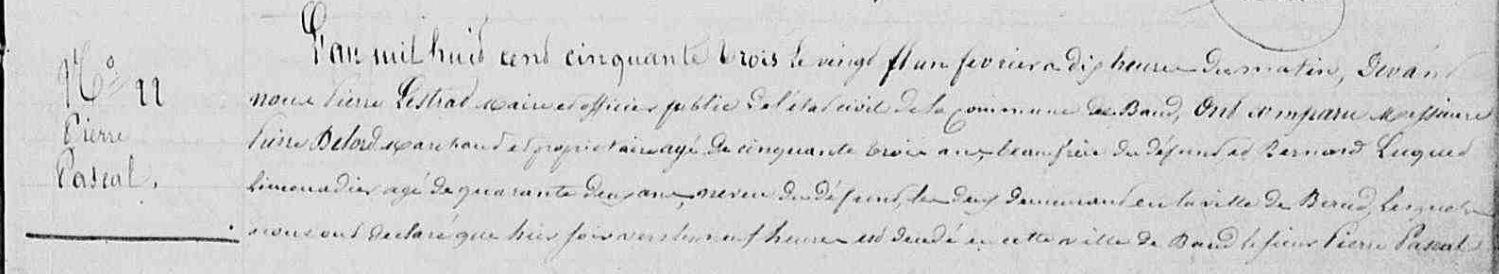 N° 22
Pierre
Pascal.
L'an mil huit cent cinquante trois le vingt et un fevrier a dix heures du matin, Devant
nous Pierre Lestrad maire et officier public de l'état civil de la Commune de Baud, Ont comparu Messieurs
Pierre Belord marchand et propriétaire agé de cinquante trois ans beau frère du défunt et Bernard
Limonadier agé de quarante deux ans, neveu du défunt, les deux demeurant en la ville de Baud, Lesquels
nous ont declaré que hier soir vers les neuf heures est decedé en cette ville de Baud le sieur Pierre Pascal